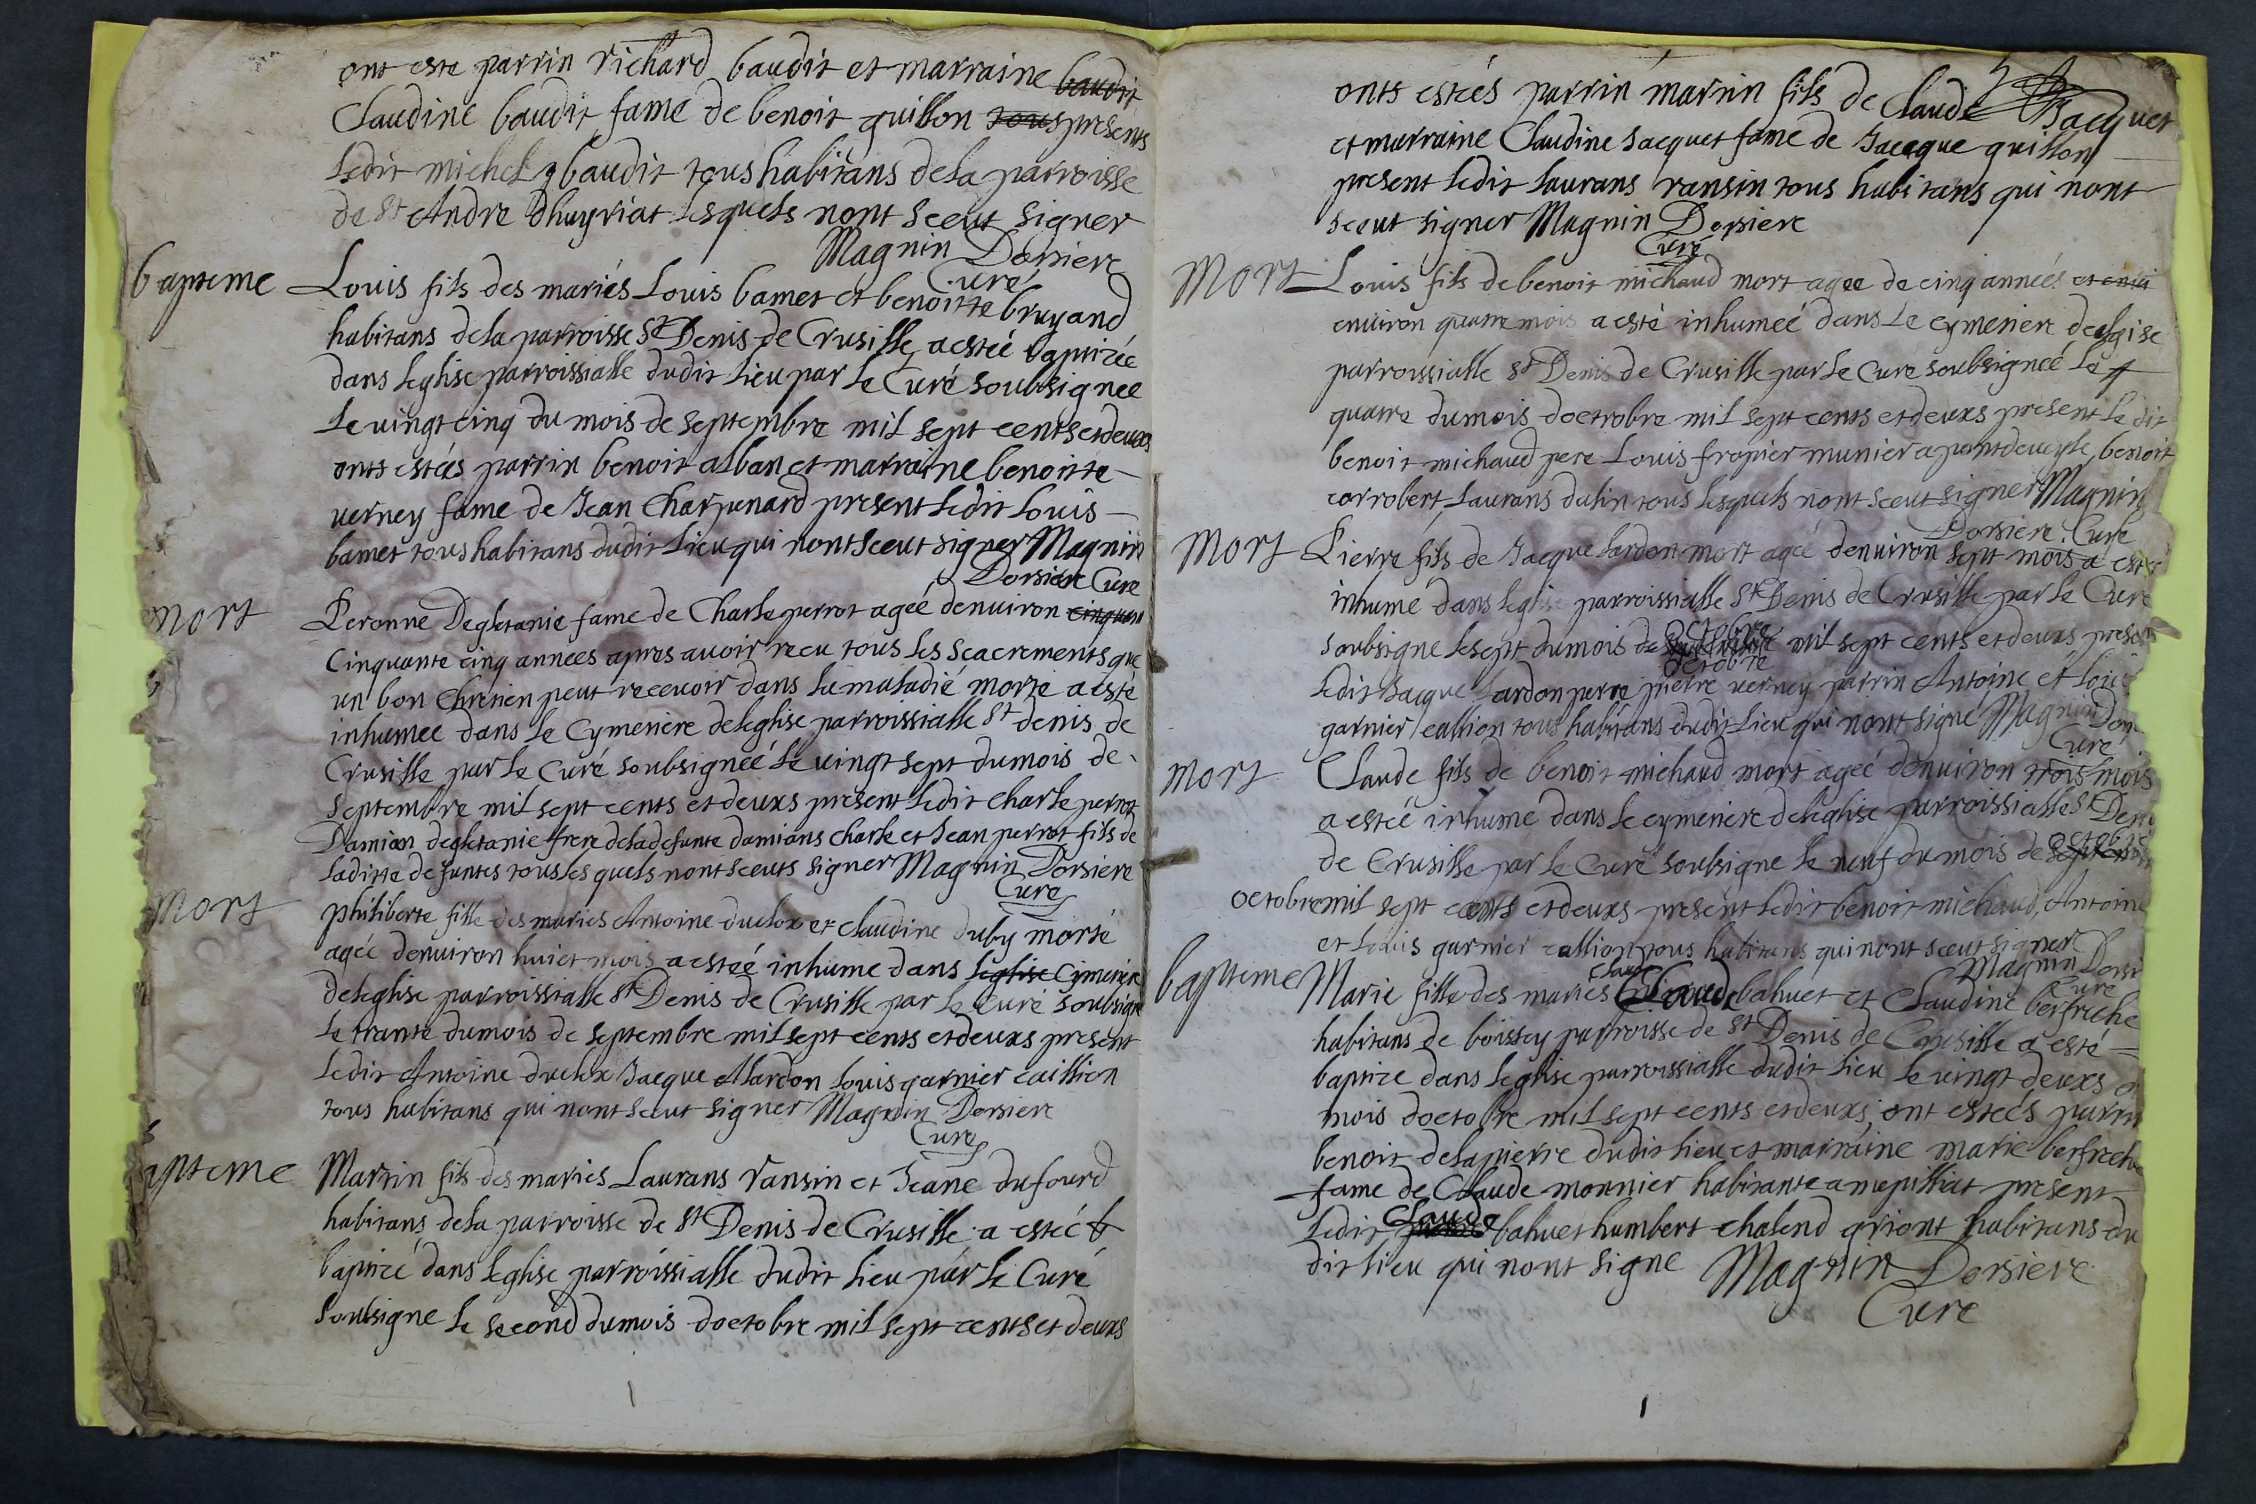 ont este parrin richard baudit et marraine baudit
Claudine baudit fame de benoit guillon tous presents
ledit michel baudit tous habitans dela parroisse
de St Andre dhuyriat lesquels nont sceut signer
Magnin Dorsiere
Curé
bapteme Louis fils des mariés Louis bamet et benoitte bruyand
habitans dela parroisse St Denis de Crusille a esteé baptizée
dans leglise parroissialle dudit lieu par le Curé soubsignee
le vingt cinq du mois de septembre mil sept cents et deuxs
onts estées parrin benoit alban et marraine benoitte
verney fame de Jean Charpenard present ledit Louis
bamet tous habitans dudit lieu qui nont sceut signer Magnin
Dorsiere Cure
mort Peronne Degletanie fame de Charle perrot ageé denuiron cinquan
Cinquante cinq annees apres auoir recu tous les scacrements que
un bon Chretien peut receuoir dans la maladié morte a esté
inhumee dans le Cymetiere deleglise parroissialle St denis de
Crusille par le Curé soubsigneé le vingt sept du mois de
Septembre mil sept cents et deuxs present ledit charle perrot
Damian degletanie frere dela defunte damians charle et Jean perrot fils de
laditte defuntes tous lesquels nont sceuts signer Magnin Dorsiere
Cure
mort philiberte fille des maries Antoine duclox et claudine duby morte
agée denuiron huict mois a esteé inhume dans leglise Cymetiere
deleglise parroissialle St Denis de Crusille par le Curé soubsigne
le trante dumois de septembre mil sept cents et deuxs present
ledit Antoine duclox Jacque Alardon louis garnier caillion
tous habitans qui nont sceut signer Magnin Dorsiere
Cure
apteme Martin fils des maries Laurans ransin et Jeane dufourd
habitans dela parroisse de St Denis de Crusille a esteé b
baptizé dans leglise parroissialle dudit lieu par le Curé
soubsigne le second dumois doctobre mil sept cents et deuxs
onts esteés parrin martin fils de Claude Jacquet
et marraine Claudine Jacquet fame de Jacque guillon
present ledit laurans ransin tous habitans qui nont
sceut signer Magnin Dorsiere
Curé
mort Louis fils de benoit michaud mort agee de cinq années et enui
enuiron quatre mois a esté inhumeé dans le cymetiere deleglise
parroissialle St Denis de Crusille par le Cure soubsigneé le
quatre dumois doctrobre mil sept cents et deuxs present ledit
benoit michaud pere Louis fropier munier a pontdeueyle, benoit
corrobert, Laurans dalin tous lesquels nont sceut signer Magnin
Dorsiere Cure
mort Pierre fils de Jacque lardon mort ageé denuiron sept mois a esté
inhumé dans leglise parroissialle St Denis de Crusille par le Curé
soubsigne le sept dumois de octobre mil sept cents et deuxs present
octobre
ledit Jacque lardon perre pierre verney parrin Antoine et loui
garnier callion tous habitans dudit lieu qui nont signé Magnin Dor
Cure
mort Claude fils de benoit michaud mort ageé denuiron trois mois
a esteé inhumé dans le cymetiere deleglise parroissialle St Deni
de Crusille par le Curé soubsigne le neuf dumois de septembre octobre
octobre mil sept cents et deuxs present ledit benoit michaud, Antoine
et Louis garnier callion tous habitans qui nont sceut signer
Magnin Dorsi
Cure
bapteme Marie fille des maries Claude bahuet et Claudine berfreche
habitans de boissey parroisse de St Denis de Crusille a esté
baptize dans leglise parroissialle dudit lieu le vingt deuxs d
mois doctobre mil sept cents et deuxs, ont esteés parrin
benoit delapierre dudit lieu et marraine marie berfreche
fame de Claude monnier habitante a mepilliat present
ledit Claude bahuet humbert chalend griont habitans du
dit lieu qui nont signe Magnin Dorsiere
Cure